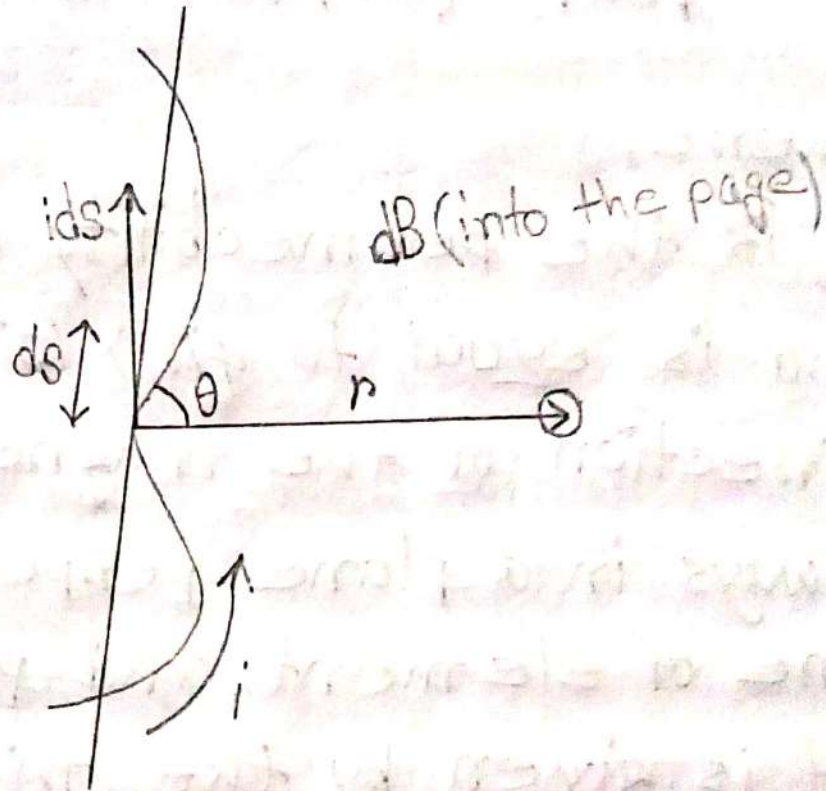 ids
dB (into the page)
ds
θ
r
i